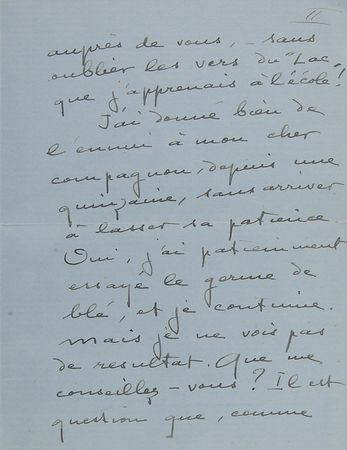 II
auprès de vous, – sans
oublier les vers du "Lac"
que j'apprenais à l'école!
J'ai donné bien de
l'ennui à mon cher
compagnon, depuis une
quinzaine, sans arriver
à lasser sa patience
Oui, j'ai patiemment
essayé le germe de
blé, et je continue.
Mais je ne vois pas
de resultat. Que me
conseillez-vous? Il est
question que, comme